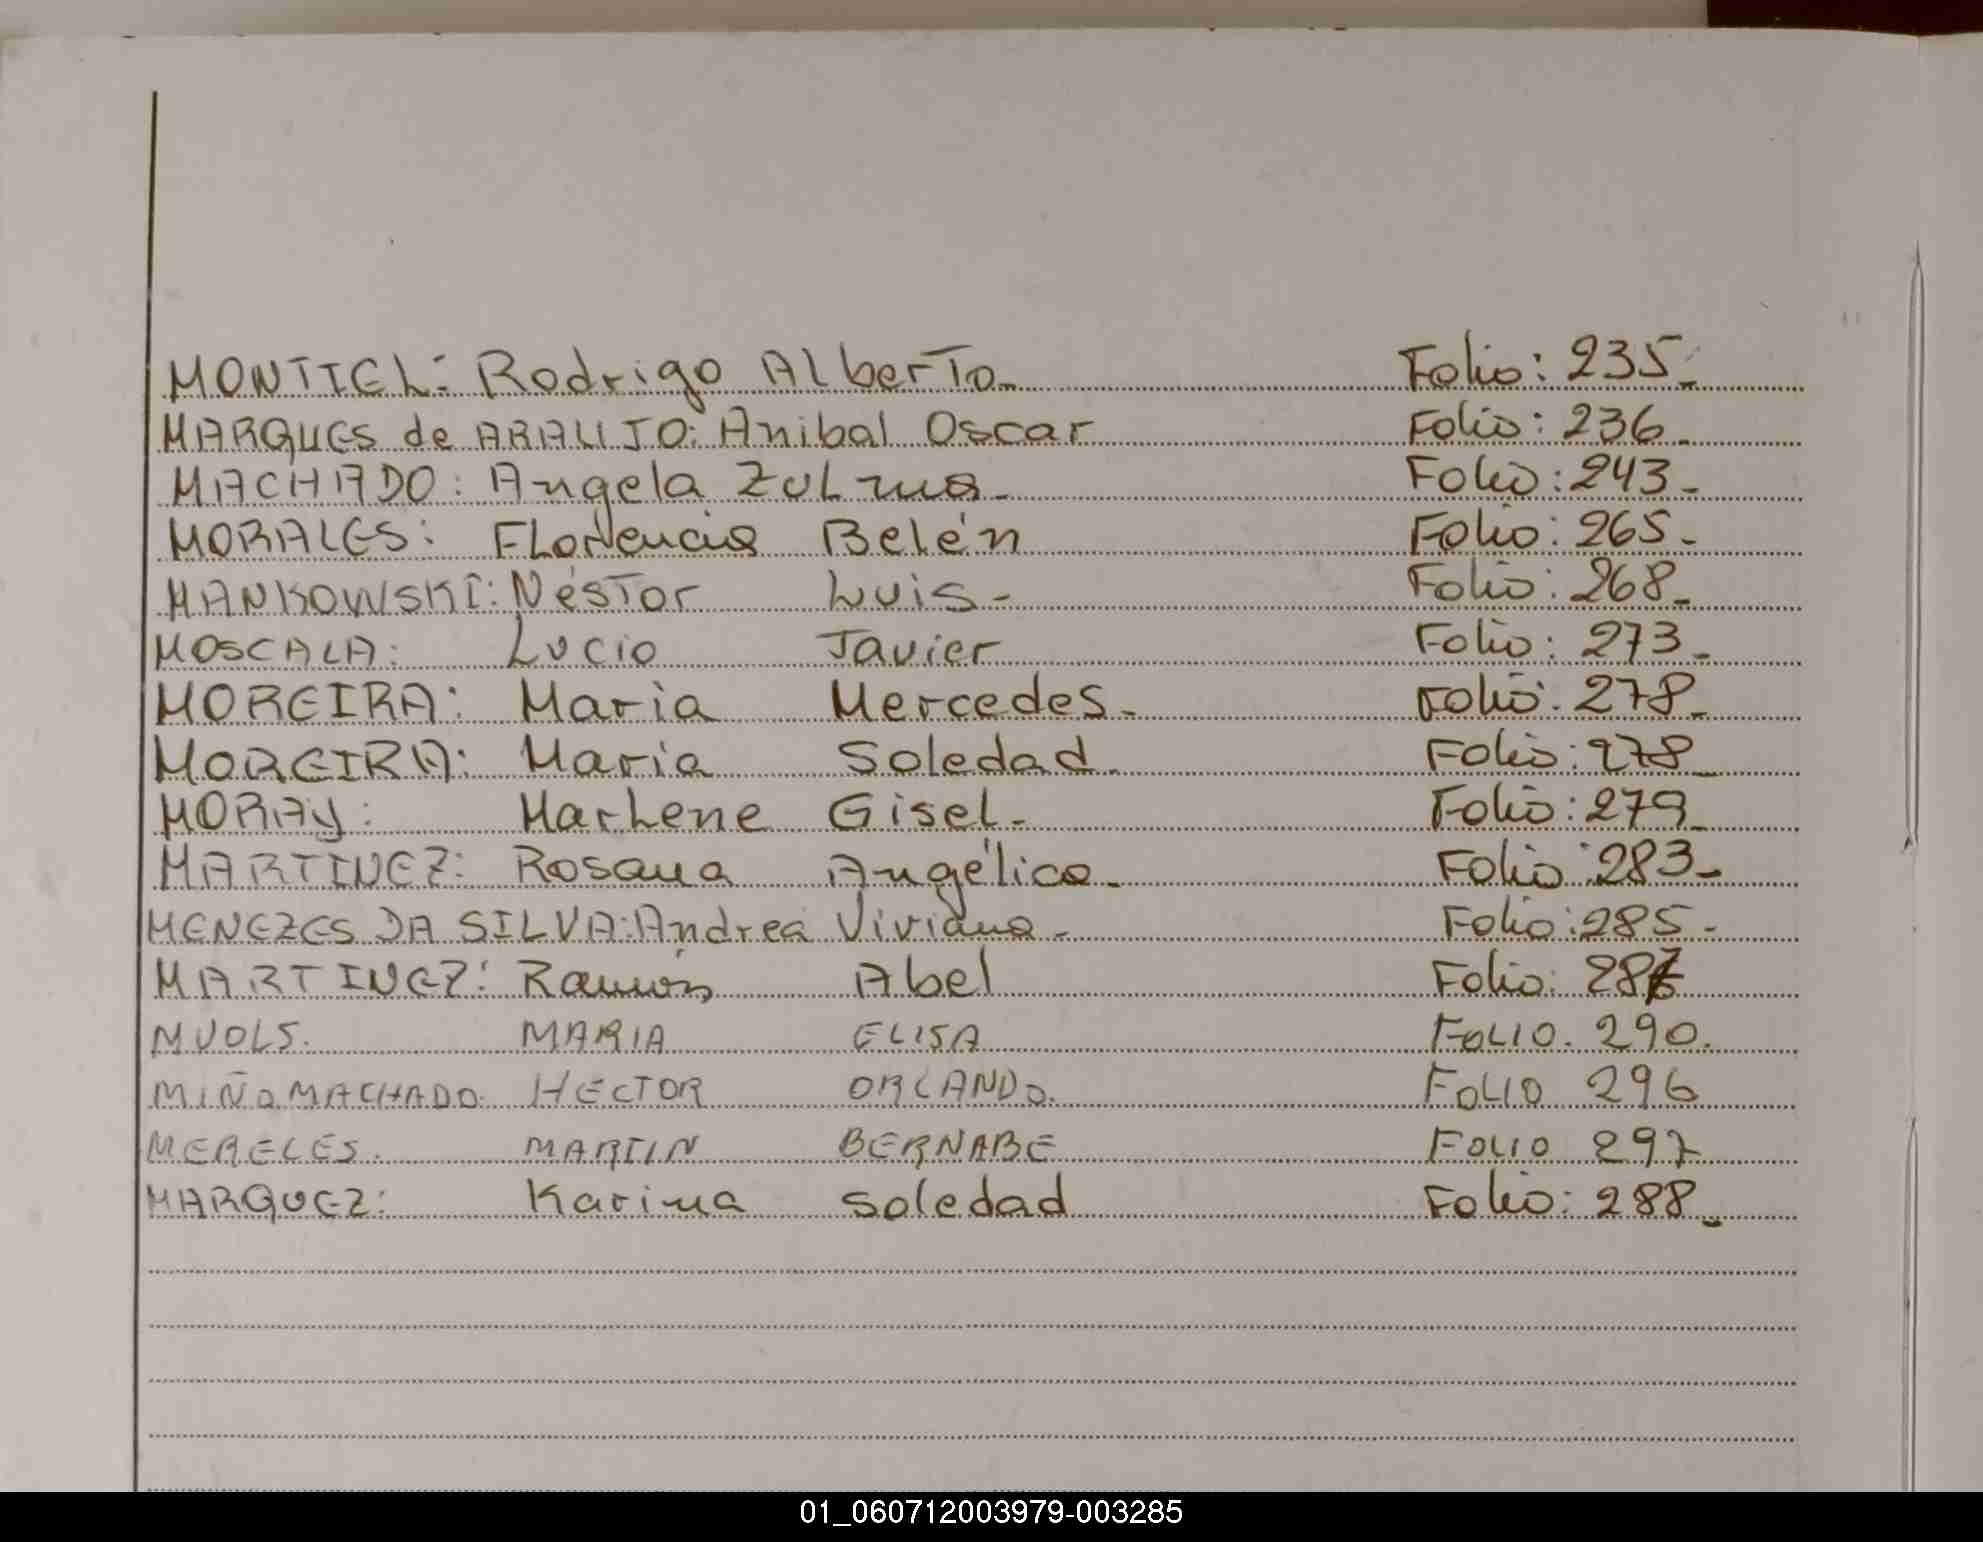 MONTIEL: Rodrigo Alberto. Folio: 235.
MARQUES de ARAUJO: Anibal Oscar Folio: 236.
MACHADO: Angela Zulma. Folio: 243.
MORALES: Florencia Belén Folio: 265.
MANKOWSKI: Néstor Luis. Folio: 268.
MOSCALA: Lucio Javier Folio: 273.
MOREIRA: Maria Mercedes. Folio: 278.
MOREIRA: Maria Soledad. Folio: 278.
MORAY: Marlene Gisel. Folio: 279.
MARTINEZ: Rosana Angélica. Folio: 283.
MENEZES DA SILVA: Andrea Viviana. Folio: 285.
MARTINEZ: Ramón Abel Folio:
MUOLS. MARIA ELISA FOLIO. 290.
MIÑO MACHADO. HECTOR ORLANDO. FOLIO 296
MERELES. MARTIN BERNABE FOLIO 297
MARQUEZ: Karina Soledad Folio: 288.
01_060712003979-003285